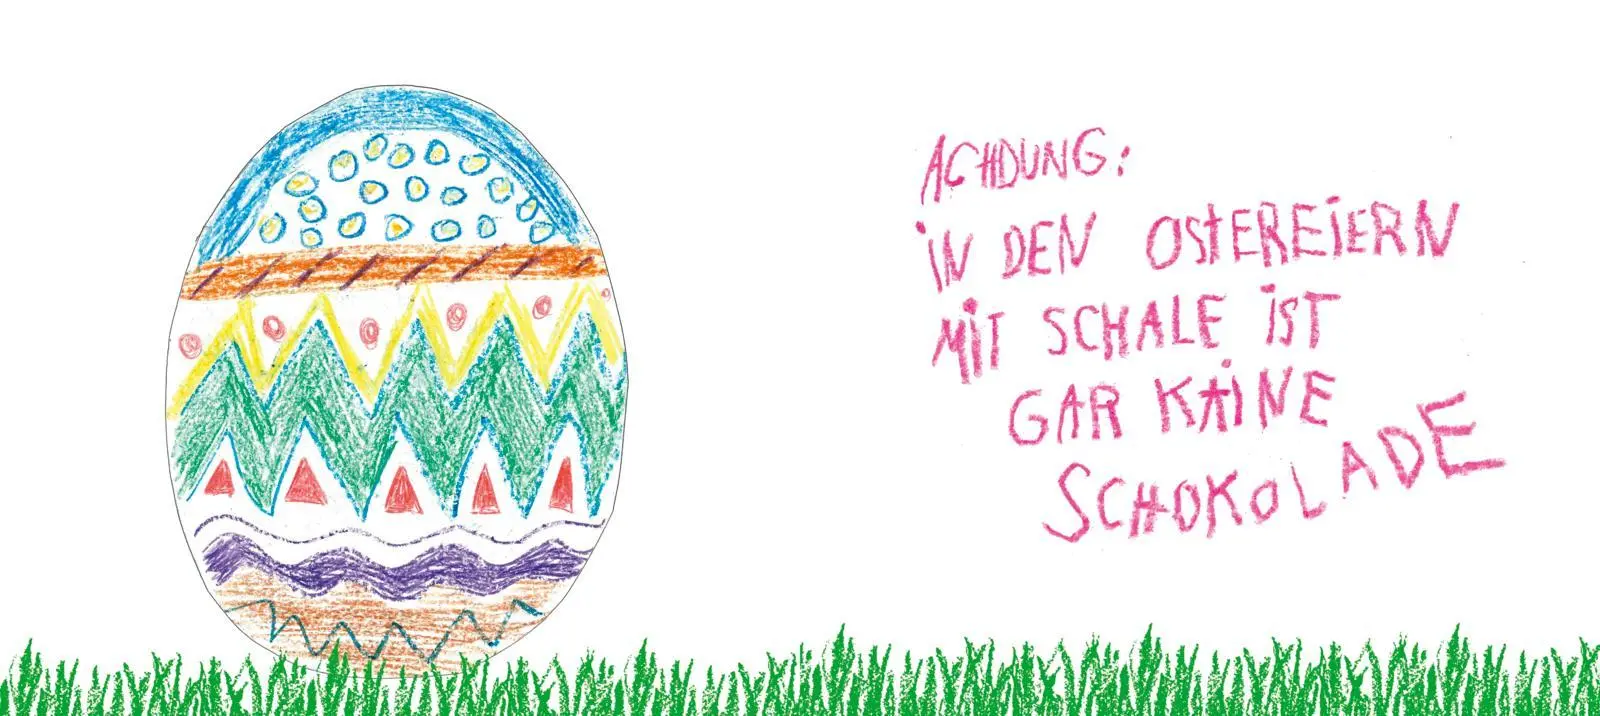 ACHDUNG:
iN DEN OStEREiERN
MiT SCHALE iST
GAR KAiNE
SCHOKOLADE